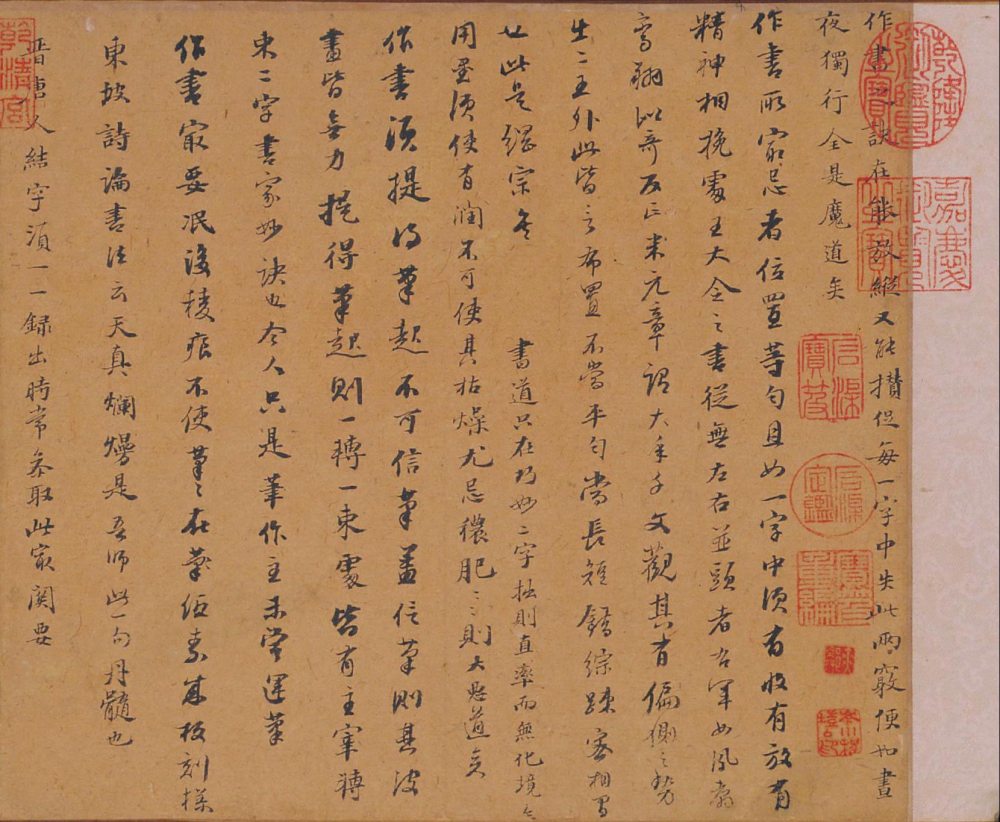 作書之訣在能放縱又能攢促每一字中失此兩竅便如晝
夜獨行全是魔道矣
作書所最忌者位置等勻且如一字中須有收有放有
精神相挽處王大令之書從無左右並頭者右軍如鳳翥
鸞翔似奇反正米元章謂大年千文觀其有偏側之勢
出二王外此皆言布置不當平勻當長短錯綜疎密相間
也此是 書道只在巧妙二字拙則直率而無化境矣
用墨須使有潤不可使其枯燥尤忌穠肥穠肥則大惡道矣
作書須提得筆起不可信筆蓋信筆則其波
畫皆無力提得筆起則一轉一束處皆有主宰轉
束二字書家妙訣也今人只是筆作主未嘗運筆
作書最要泯沒稜痕不使筆筆在紙素成板刻樣
東坡詩論書法云天真爛熳是吾師此一句丹髓也
晉唐人結字須一一錄出時常參取此最関要
乾隆御覽之寶
嘉慶御覽之寶
石渠寶笈
石渠定鑑
寶笈重編